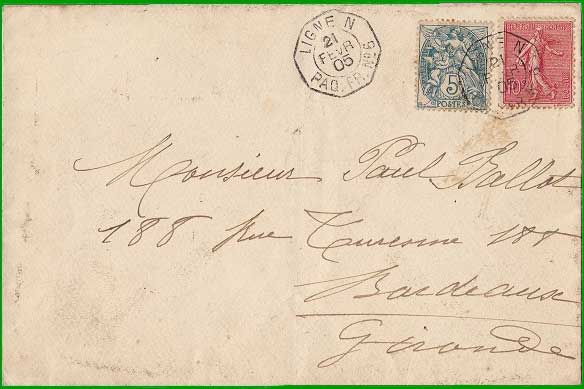 LIGNE N
21
FEVR
05
PAQ. FR. Nº 6
5
POSTES
10
LIGNE N
21
05
Monsieur Paul Ballot
188 Rue Turenne 188
Bordeaux
Gironde